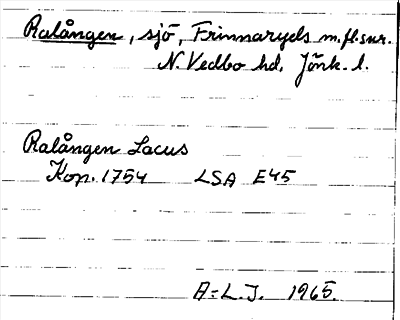 Ralången, sjö, Frinnaryds m.fl.snr.
N. Vedbo hd. Jönk. l.
Ralången Lacus
Kop. 1754 LSA E45
A-L.J. 1965.